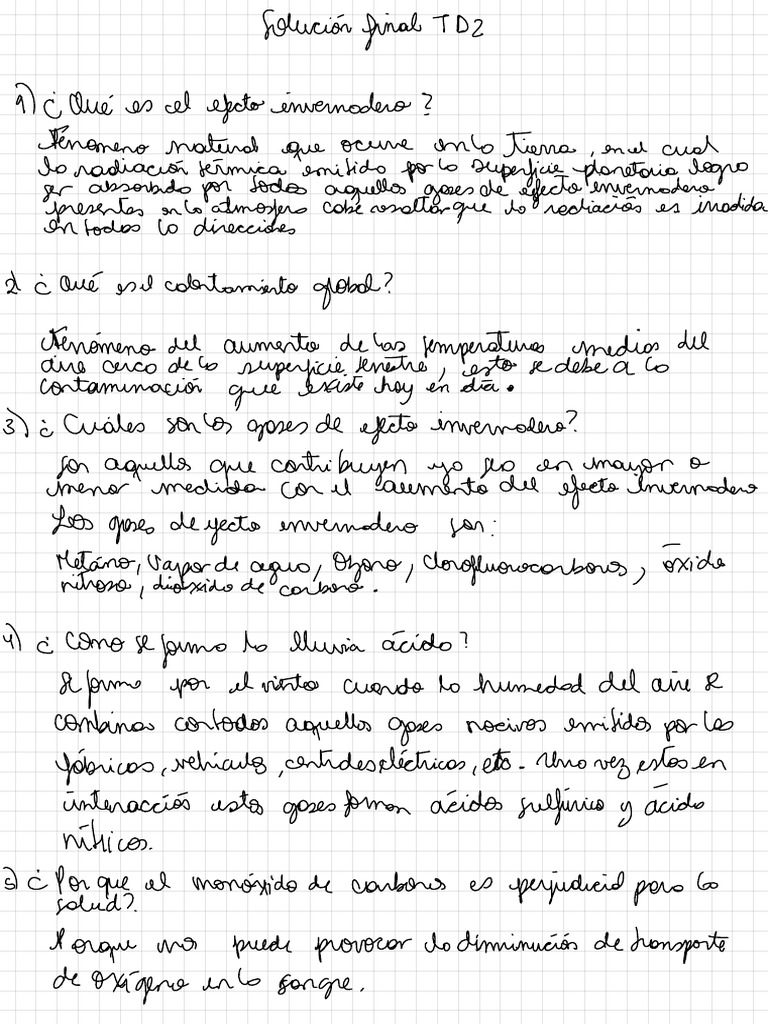 Solución final TD2
1) ¿Qué es el efecto invernadero?
Fenómeno natural que ocurre en la Tierra, en el cual
la radiación térmica emitida por la superficie planetaria logra
ser absorbida por todos aquellos gases de efecto invernadero
presentes en la atmosfera cabe resaltar que la radiación es irradida
en todas la direcciones
2) ¿Qué es el calentamiento global?
Fenómeno del aumento de las temperaturas medias del
aire cerca de la superficie terrestre, esto se debe a la
contaminación que existe hoy en día.
3) ¿Cuáles son los gases de efecto invernadero?
Son aquellos que contribuyen ya sea en mayor o
menor medida con el aumento del efecto invernadero
Los gases de efecto invernadero son:
Metano, Vapor de agua, Ozono, Clorofluorocarbonos, óxido
nitroso, dióxido de carbono.
4) ¿Como se forma la lluvia ácida?
Se forma por el viento cuando la humedad del aire se
combina con todos aquellos gases nocivos emitidos por las
fábricas, vehículos, centrales eléctricas, etc. Una vez estos en
interacción estos gases forman ácidos sulfúrico y ácido
nítricos.
5) ¿Por que el monóxido de carbono es perjudicial para la
salud?
Porque nos puede provocar la diminución de transporte
de oxígeno en la sangre.